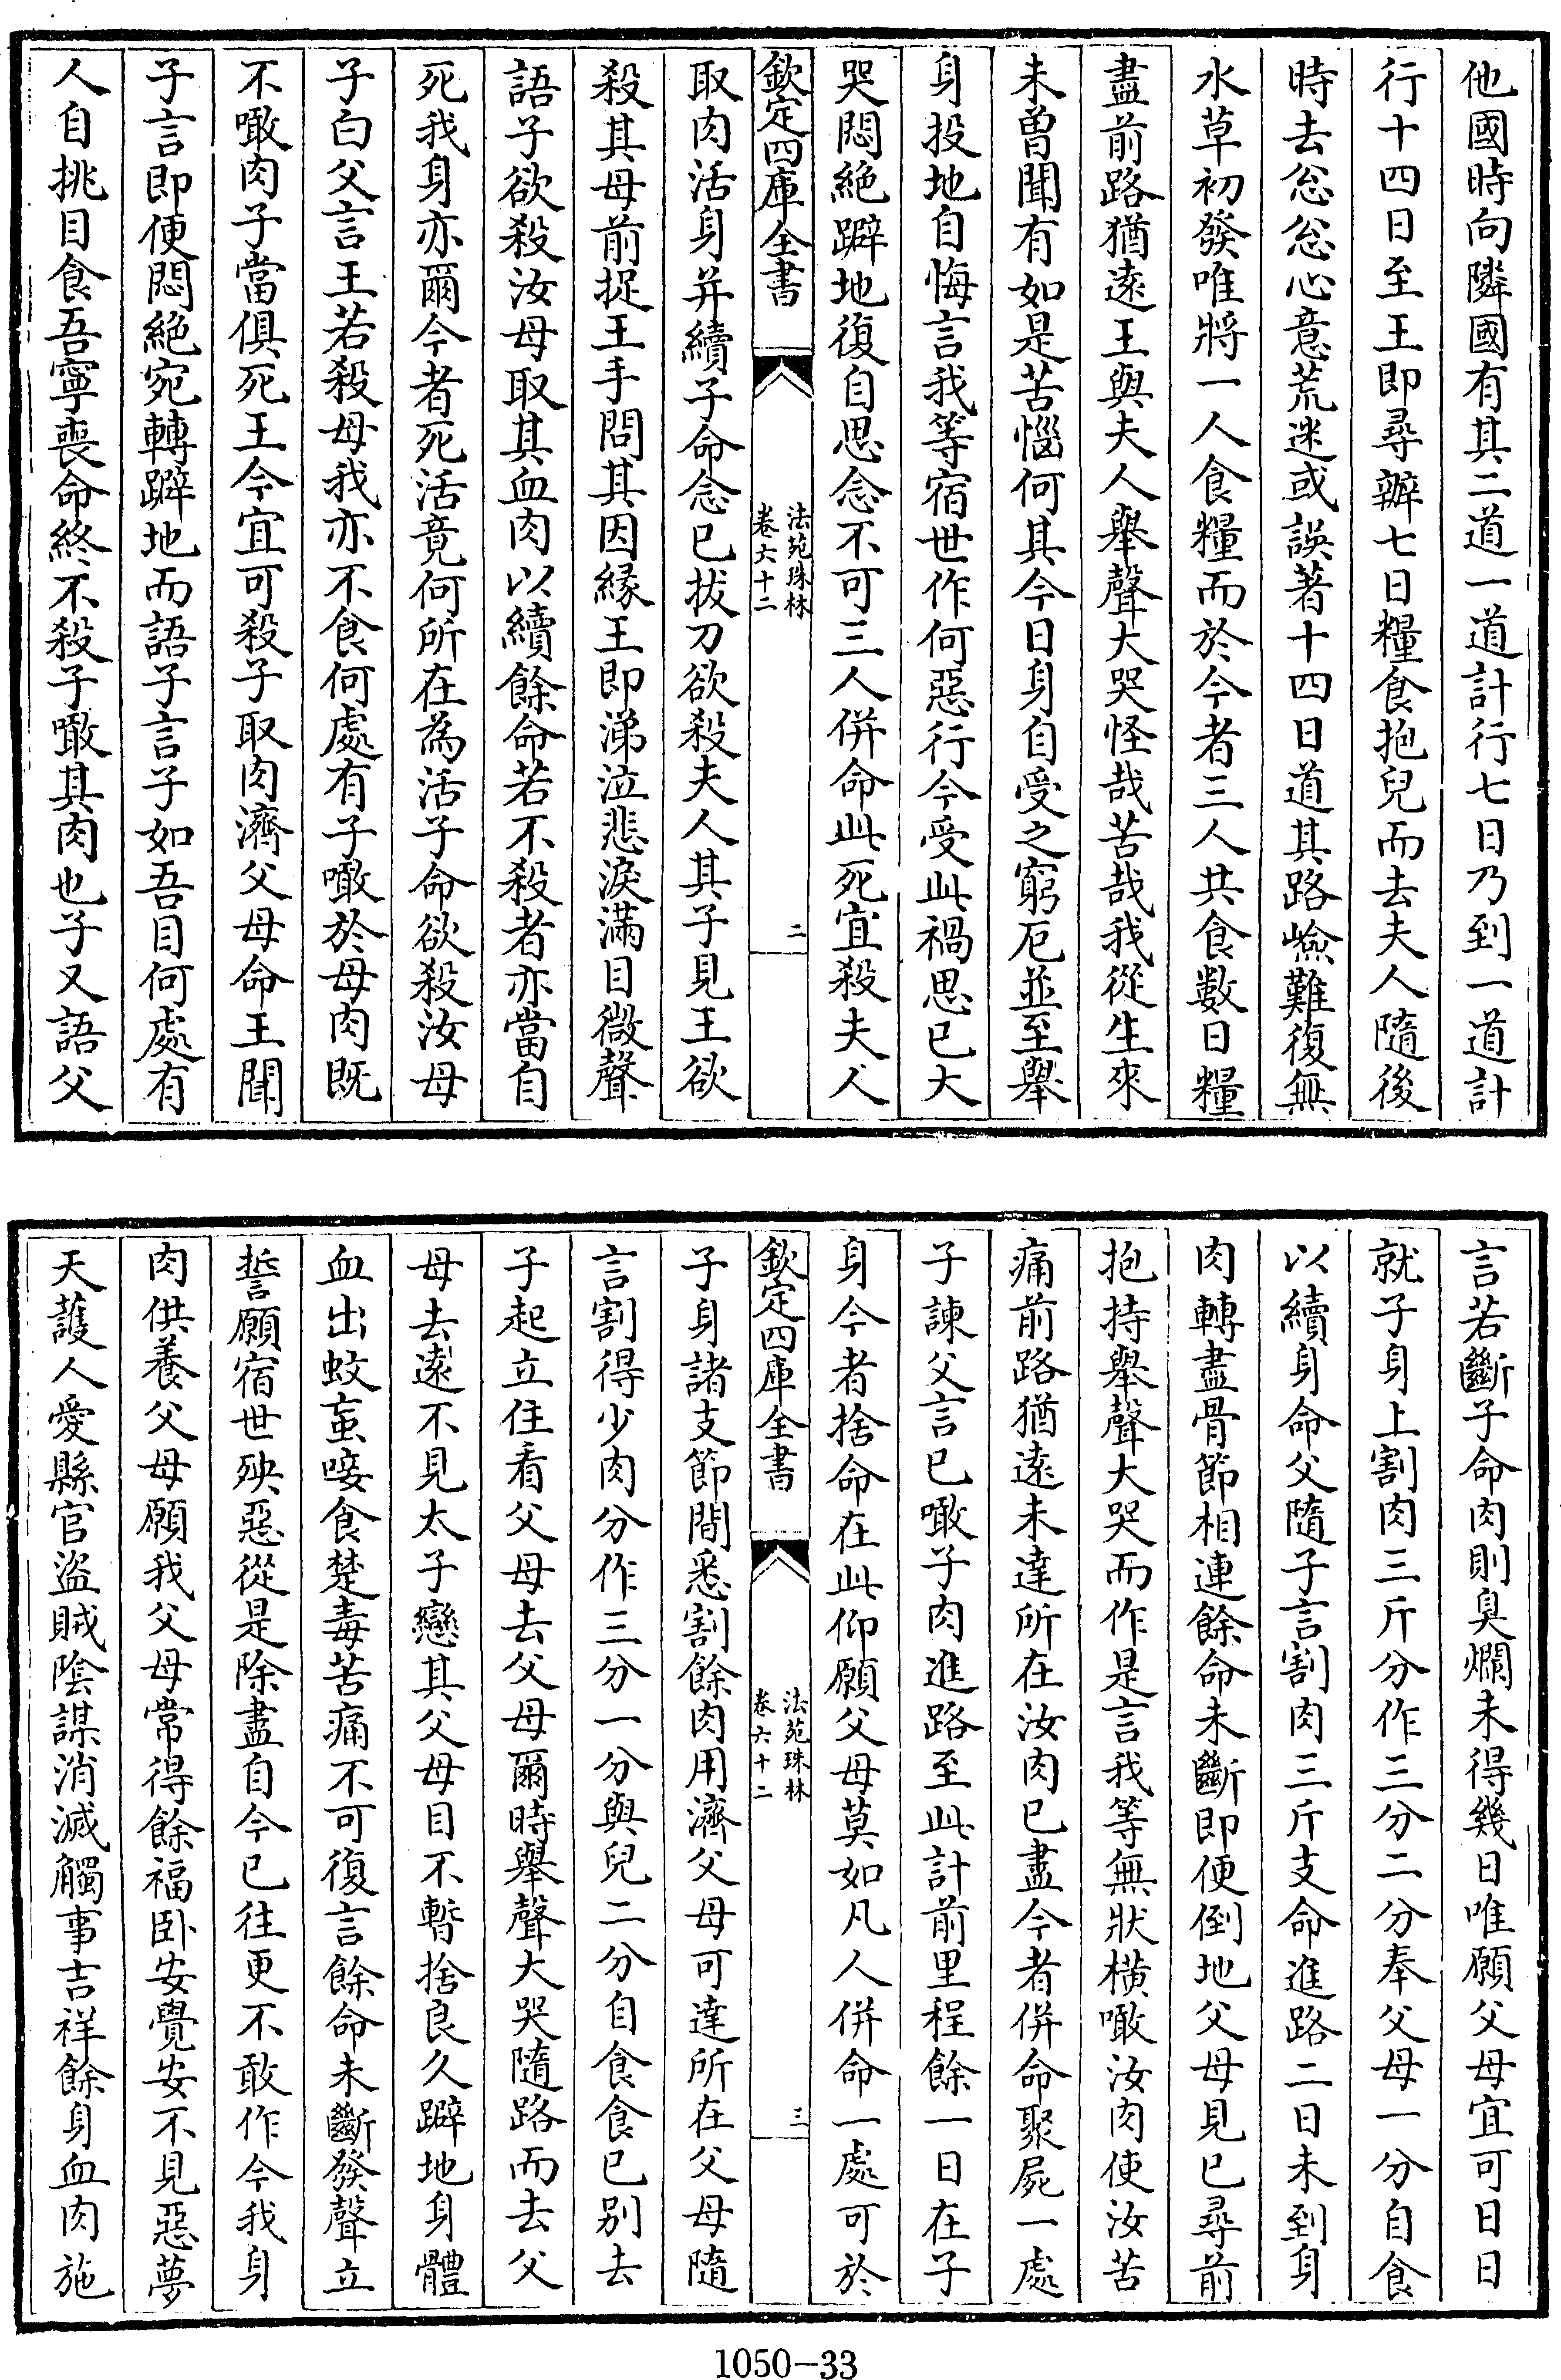 他國時向隣國有其二道一道計行七日乃到一道計
行十四日至王即尋辦七日糧食抱兒而去夫人隨後
時去忩忩心意荒迷或誤著十四日道其路嶮難復無
水草初發唯將一人食糧而於今者三人共食數日糧
盡前路猶遠王與夫人舉聲大哭怪哉苦哉我從生來
未曽聞有如是苦惱何其今日身自受之窮厄並至舉
身投地自悔言我等宿世作何惡行今受此禍思已大
哭悶絶躃地復自思念不可三人併命此死宜殺夫人
欽定四庫全書
法苑珠林
卷六十二
二
取肉活身并續子命念已拔刀欲殺夫人其子見王欲
殺其母前捉王手問其因縁王即涕泣悲淚滿目微聲
語子欲殺汝母取其血肉以續餘命若不殺者亦當自
死我身亦爾今者死活竟何所在為活子命欲殺汝母
子白父言王若殺母我亦不食何處有子噉於母肉既
不噉肉子當俱死王今宜可殺子取肉濟父母命王聞
子言即便悶絶宛轉躃地而語子言子如吾目何處有
人自挑目食吾寧喪命終不殺子噉其肉也子又語父
言若斷子命肉則臭爛未得幾日唯願父母宜可日日
就子身上割肉三斤分作三分二分奉父母一分自食
以續身命父隨子言割肉三斤支命進路二日未到身
肉轉盡骨節相連餘命未斷即便倒地父母見已尋前
抱持舉聲大哭而作是言我等無狀横噉汝肉使汝苦
痛前路猶遠未達所在汝肉已盡今者併命聚屍一處
子諫父言已噉子肉進路至此計前里程餘一日在子
身今者捨命在此仰願父母莫如凡人併命一處可於
欽定四庫全書
法苑珠林
卷六十二
三
子身諸支節間悉割餘肉用濟父母可達所在父母隨
言割得少肉分作三分一分與兒二分自食食已别去
子起立住看父母去父母爾時舉聲大哭隨路而去父
母去遠不見太子戀其父母目不暫捨良久躃地身體
血出蚊䖟唼食楚毒苦痛不可復言餘命未斷發聲立
誓願宿世殃惡從是除盡自今已往更不敢作今我身
肉供養父母願我父母常得餘福卧安覺安不見惡夢
天䕶人愛縣官盜賊陰謀消滅觸事吉祥餘身血肉施
1050-33